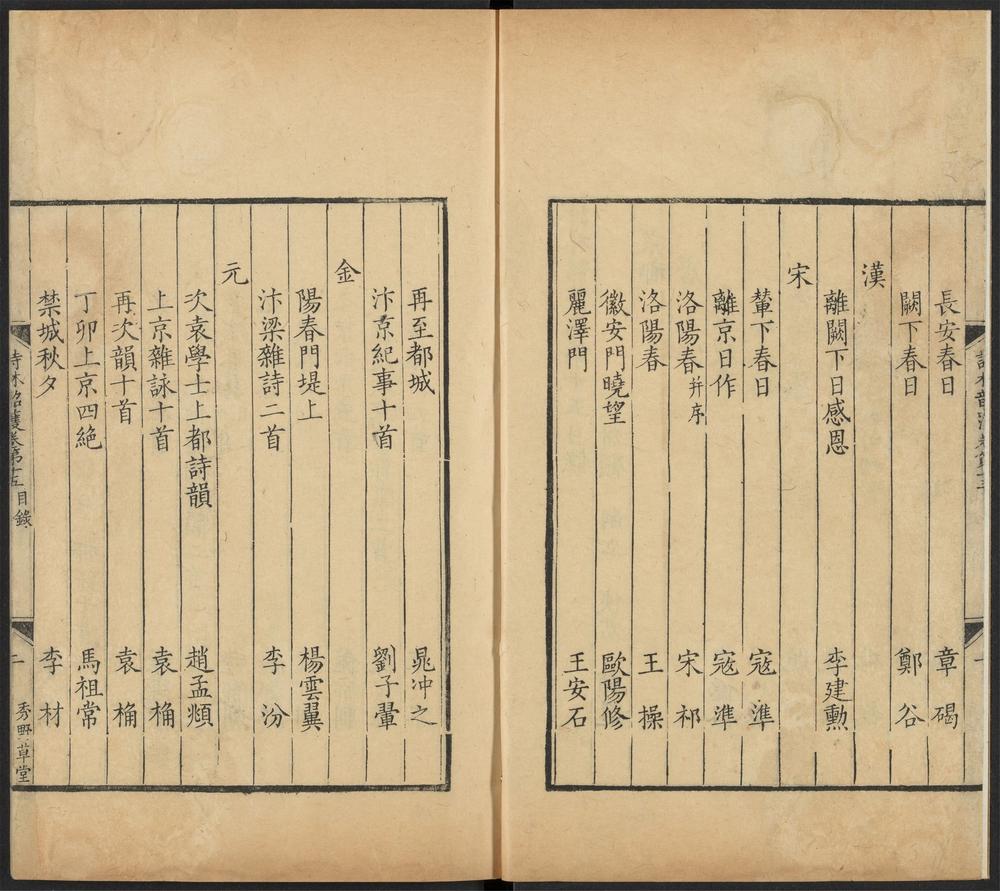 長安春日 章碣
闕下春日 鄭谷
漢
離闕下日感恩 李建勲
宋
輦下春日 寇準
離京日作 寇準
洛陽春并序 宋祁
洛陽春 王操
徽安門曉望 歐陽修
麗澤門 王安石
再至都城 晁冲之
汴京紀事十首 劉子翬
金
陽春門堤上 楊雲翼
汴梁雜詩二首 李汾
元
次袁學士上都詩韻 趙孟頫
上京雜詠十首 袁桷
再次韻十首 袁桷
丁卯上京四絶 馬祖常
禁城秋夕 李材
詩林韶濩卷第十五目錄 二 秀野草堂